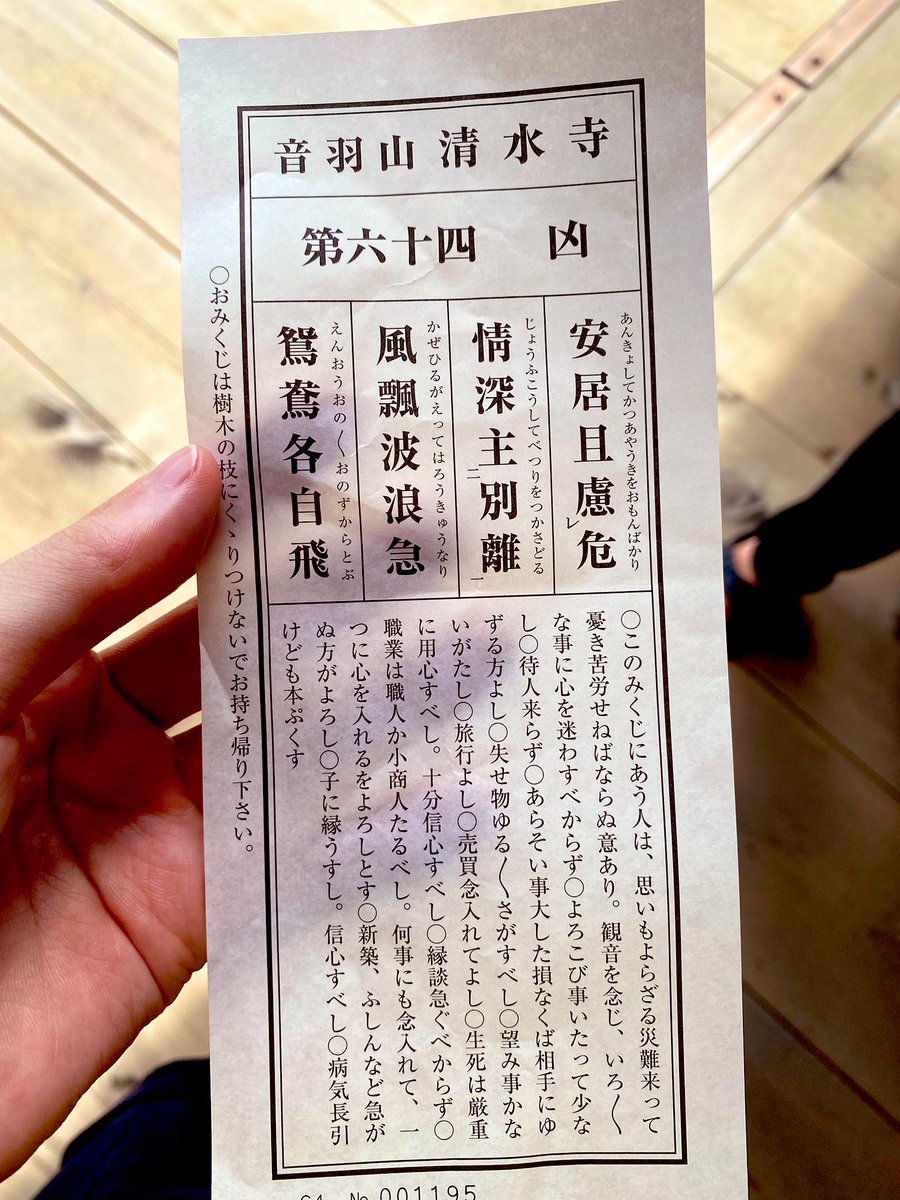 音羽山清水寺
第六十四 凶
あんきょしてかつあやうきをおもんばかり
安居且慮レ危
じょうふこうしてべつりをつかさどる
情深主二別離一
かぜひるがえってはろうきゅうなり
風飄波浪急
えんおうおの〱おのずからとぶ
鴛鴦各自飛
〇このみくじにあう人は、思いもよらざる災難来って
憂き苦労せねばならぬ意あり。観音を念じ、いろ〱
な事に心を迷わすべからず〇よろこび事いたって少な
し〇待人来らず〇あらそい事大した損なくば相手にゆ
ずる方よし〇失せ物ゆる〱さがすべし〇望み事かな
いがたし〇旅行よし〇売買念入れてよし〇生死は厳重
に用心すべし。十分信心すべし〇縁談急ぐべからず〇
職業は職人か小商人たるべし。何事にも念入れて、一
つに心を入れるをよろしとす〇新築、ふしんなど急が
ぬ方がよろし〇子に縁うすし。信心すべし〇病気長引
けども本ぷくす
〇おみくじは樹木の枝にくゝりつけないでお持ち帰り下さい。
64 № 001195